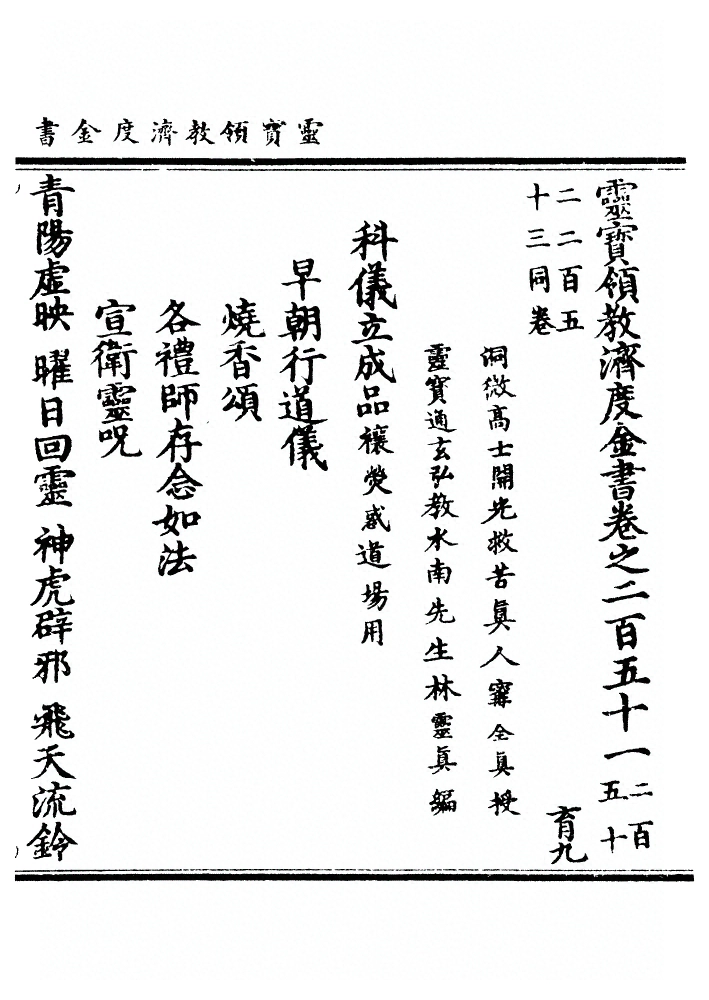 靈寶領教濟度金書
靈寶領教濟度金書卷之二百五十一二百五十
二二百五
十三同卷
育九
洞微高士開光救苦眞人寗全眞授
靈寶通玄弘教水南先生林靈眞編
科儀立成品禳熒惑道場用
早朝行道儀
燒香頌
各禮師存念如法
宣衛靈呪
青陽虛映 曜日回靈 神虎辟邪 飛天流鈴